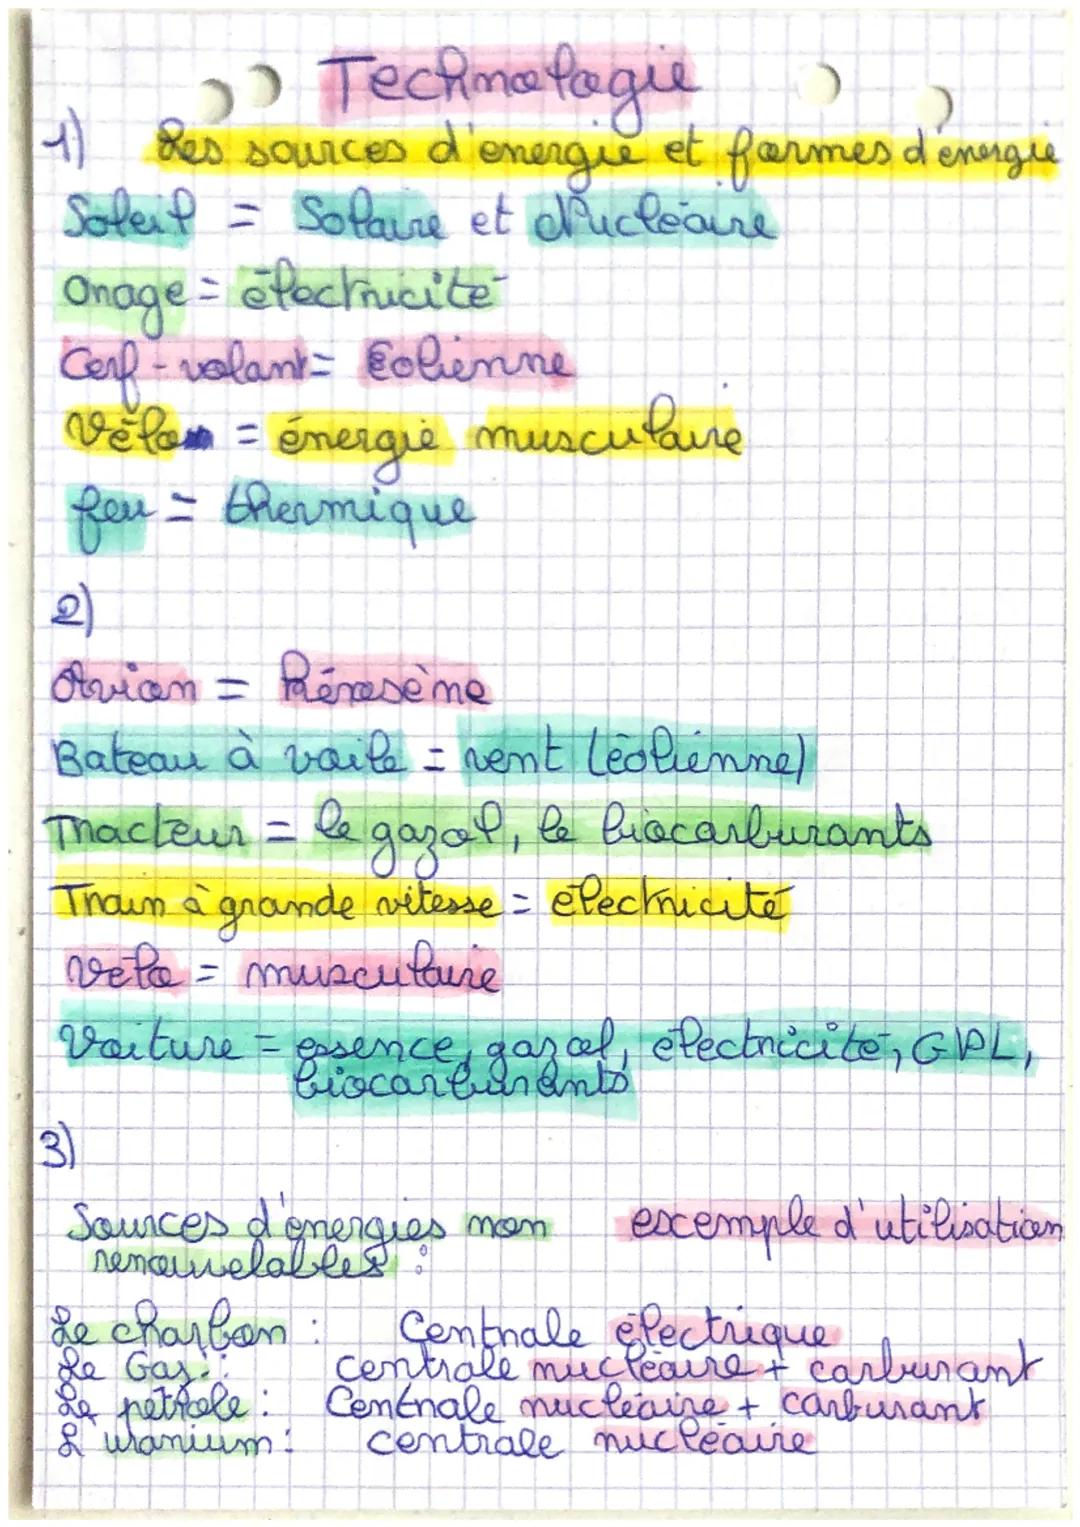 Technologie
1) Les sources d'énergie et formes d'énergie
Soleil = Solaire et Nucléaire
Orage = électricité
Cerf-volant = Éolienne
Vélo = énergie musculaire
feu = thermique
2)
Avion = Kérosène
Bateau à voile = vent (éolienne)
Tracteur = le gazol, le biocarburants
Train à grande vitesse = électricité
Vélo = musculaire
Voiture = essence, gazol, électricité, GPL,
biocarburants
3)
Sources d'énergies non exemple d'utilisation
renouvelables :
Le charbon : Centrale électrique
Le Gaz : centrale nucléaire + carburant
Le pétrole : Centrale nucléaire + carburant
L'uranium : centrale nucléaire